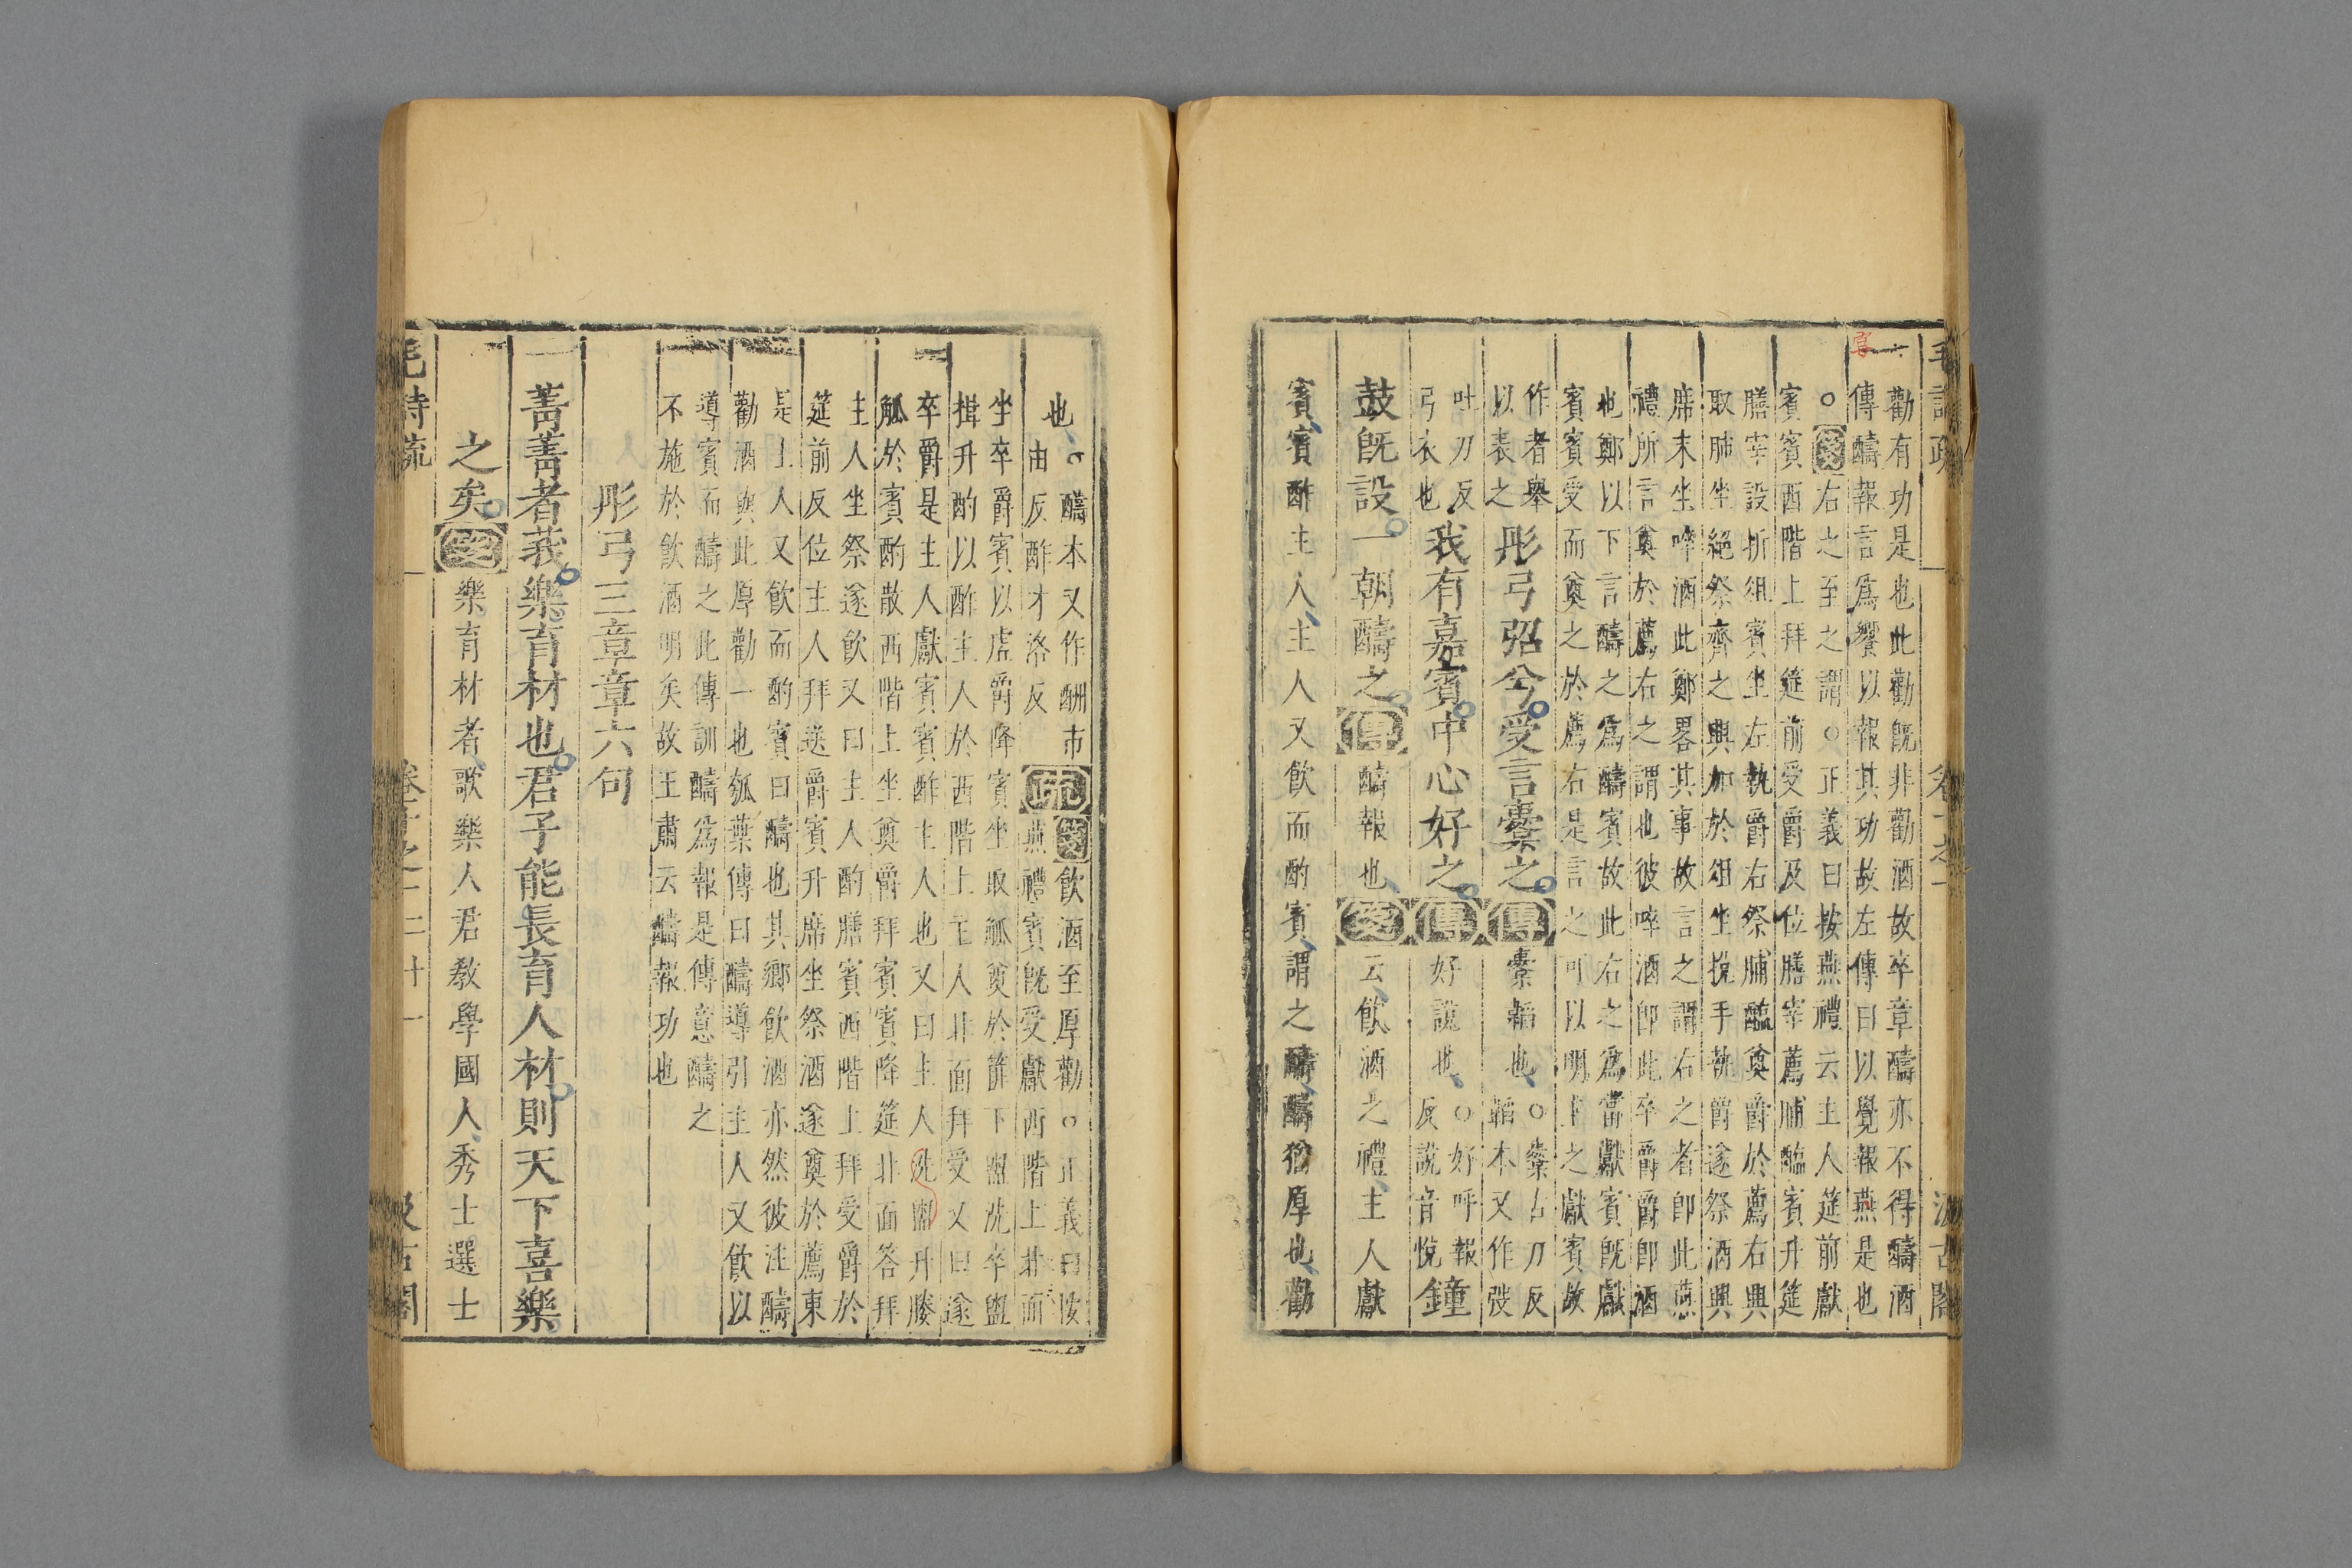 毛詩疏 卷十之一 汲古閣
勸有功是也此勸旣非勸酒故卒章醻亦不得醻酒
傳醻報言爲饗以報其功故左傳曰以覺報燕是也
○箋右之至之謂○正義曰按燕禮云主人筵前獻
賓賓西階上拜筵前受爵及位膳宰薦脯醢賓升筵
膳宰設折俎賓坐左執爵右祭脯醢奠爵於薦右興
取肺坐絕祭齊之興加於俎坐挩手執爵遂祭酒興
席末坐啐酒此鄭畧其事故言之謂右之者卽此燕
禮所言奠於薦右之謂也彼啐酒卽此卒爵爵卽酒
也鄭以下言醻之爲醻賓故此右之爲當獻賓旣獻
賓賓受而奠之於薦右是言之可以明上之獻賓故
作者舉
以表之
彤弓弨兮受言櫜之傳櫜韜也
○櫜古刀反
韜本又作弢
吐刀反
弓衣也
我有嘉賓中心好之傳好說也
○好呼報
反說音悅
鐘
鼓旣設一朝醻之傳醻報也箋云飮酒之禮主人獻
賓賓酢主人主人又飮而酌賓謂之醻醻猶厚也勸
也
○醻本又作酬市
由反酢才洛反
疏
箋飮酒至厚勸○正義曰按
燕禮賓旣受獻西階上北面
坐卒爵賓以虛爵降賓坐取觚奠於篚下盥洗卒盥
揖升酌以酢主人於西階上主人北面拜受又曰遂
卒爵是主人獻賓賓酢主人也又曰主人洗盥升媵
觚於賓酌散西階上坐奠爵拜賓賓降筵北面答拜
主人坐祭遂飮又曰主人酌膳賓西階上拜受爵於
筵前反位主人拜送爵賓升席坐祭酒遂奠於薦東
是主人又飮而酌賓曰醻也其鄉飮酒亦然彼注醻
勸酒與此厚勸一也瓠葉傳曰醻導引主人又飮以
導賓而醻之此傳訓醻爲報是傳意醻之
不施於飮酒明矣故王肅云醻報功也
彤弓三章章六句
菁菁者莪樂育材也君子能長育人材則天下喜樂
之矣箋樂育材者歌樂人君敎學國人秀士選士
毛詩疏 卷十之一 二十一 汲古閣